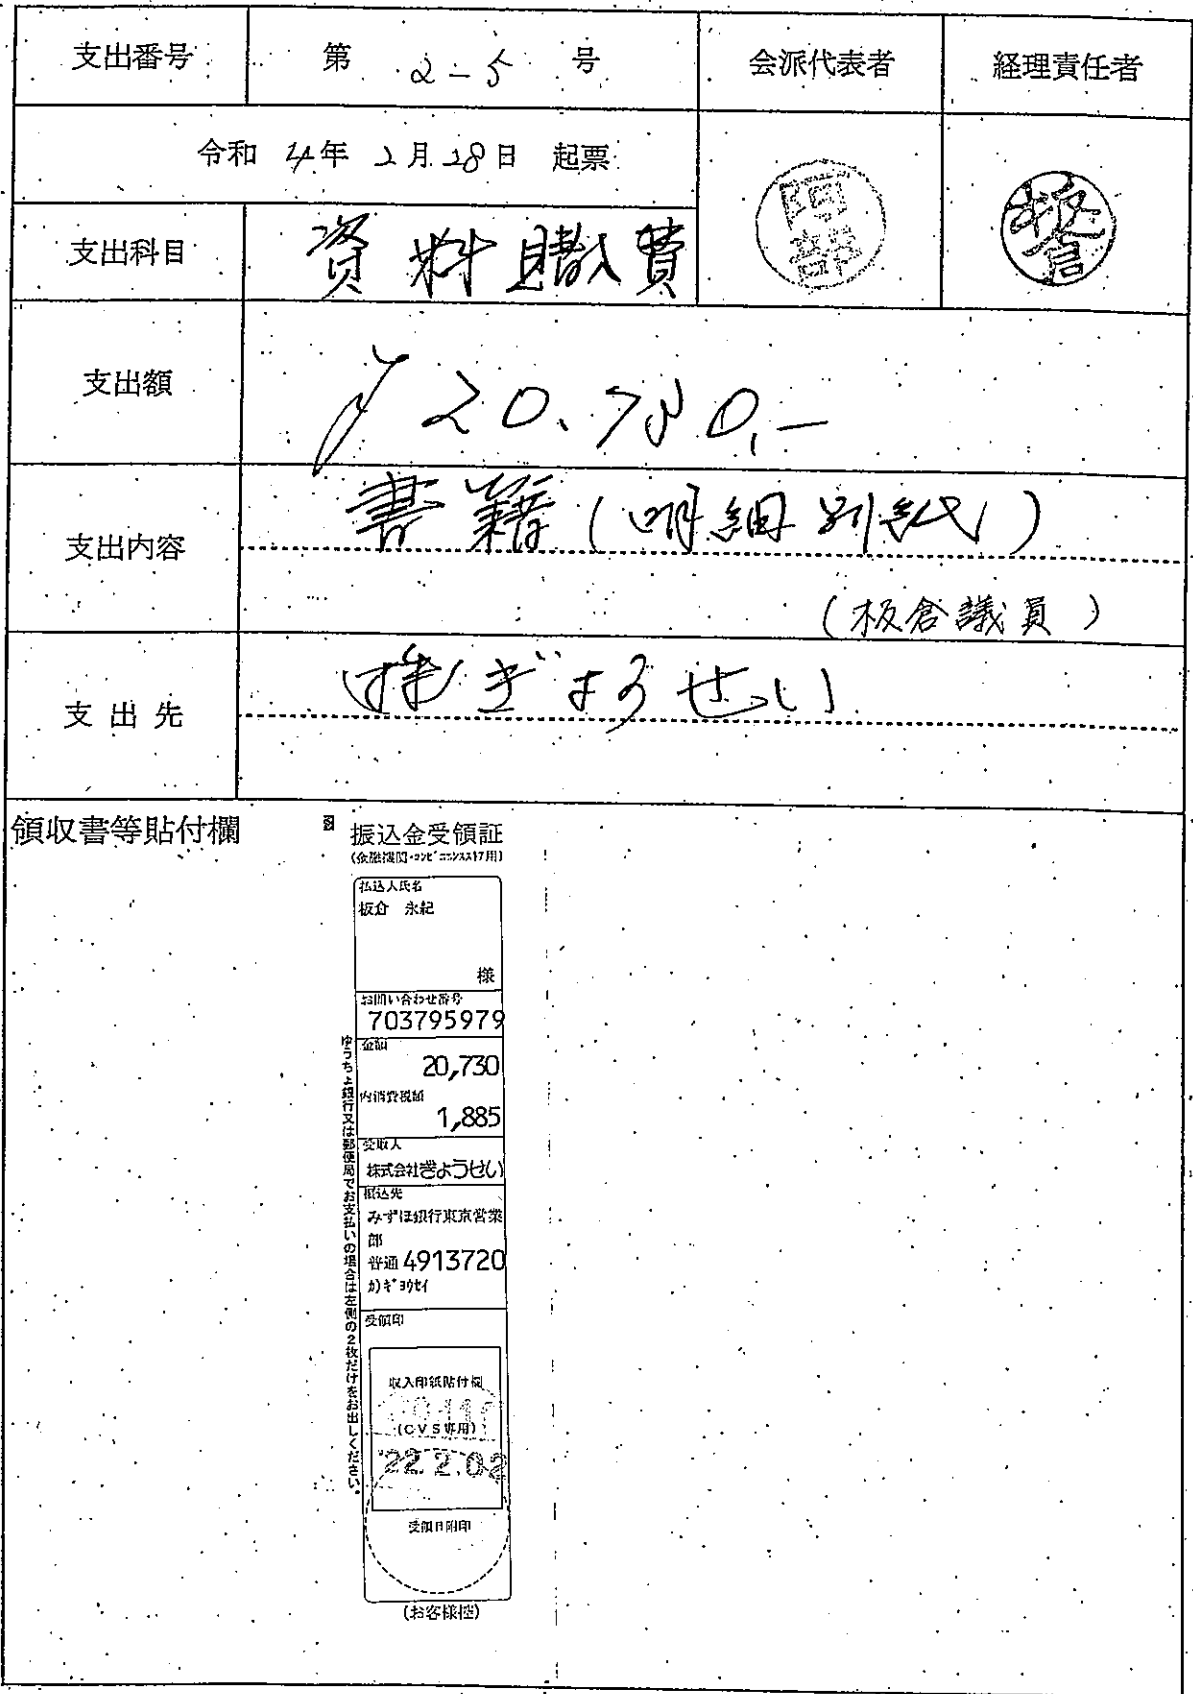 支出番号 第 2-5 号 会派代表者 経理責任者
令和 4年 2月 28日 起票
阿部
板倉
支出科目 資料購入費
支出額 ¥20,730.-
支出内容 書籍(明細別紙)
(板倉議員)
支出先 ㈱ぎょうせい
領収書等貼付欄
振込金受領証
(金融機関・コンビニエンスストア用)
払込人氏名
板倉 永紀
様
お問い合わせ番号
703795979
金額
20,730
内消費税額
1,885
受取人
株式会社ぎょうせい
振込先
みずほ銀行東京営業
部
普通 4913720
カ)ギヨウセイ
受領印
収入印紙貼付欄
(CVS専用)
'22.2.02
受領日附印
(お客様控)
ゆうちょ銀行又は郵便局でお支払いの場合は左側の2枚だけをお出しください。